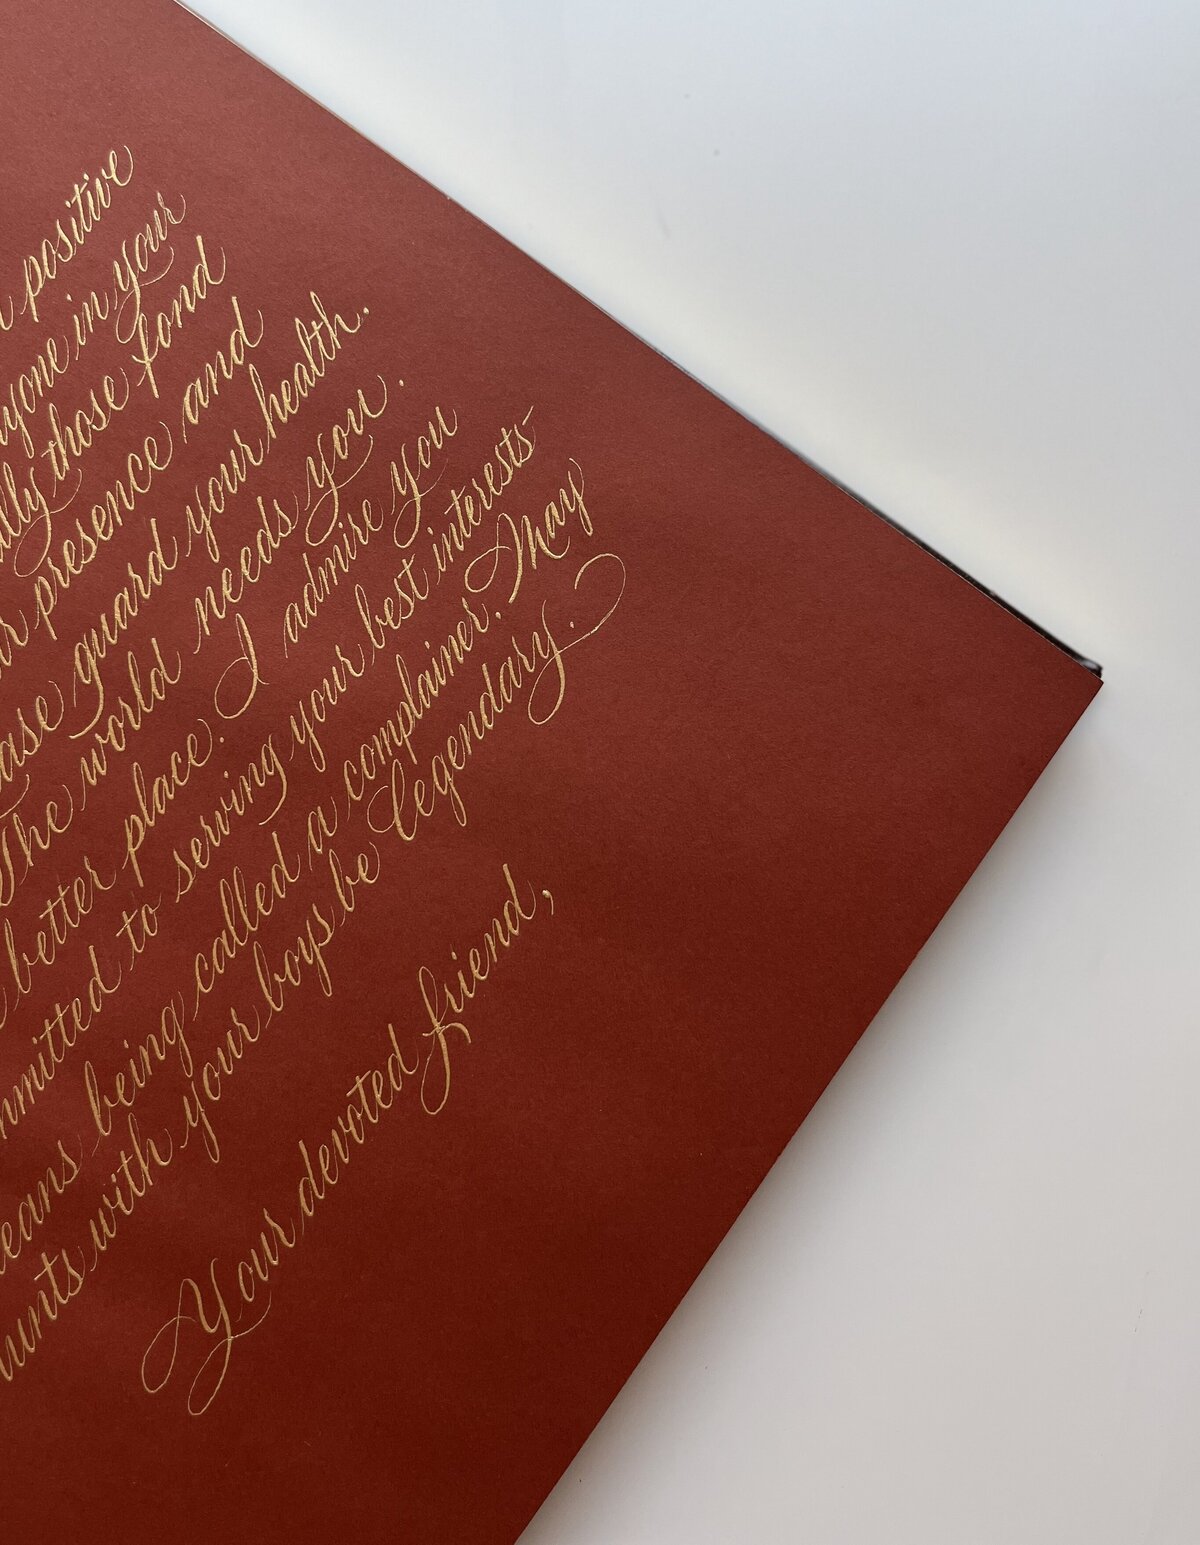 positive
in your
those fond
presence and
guard your health.
The world needs you.
better place. I admire you
to serving your best interests-
being called a complainer. May
with your boys be legendary.
Your devoted friend,